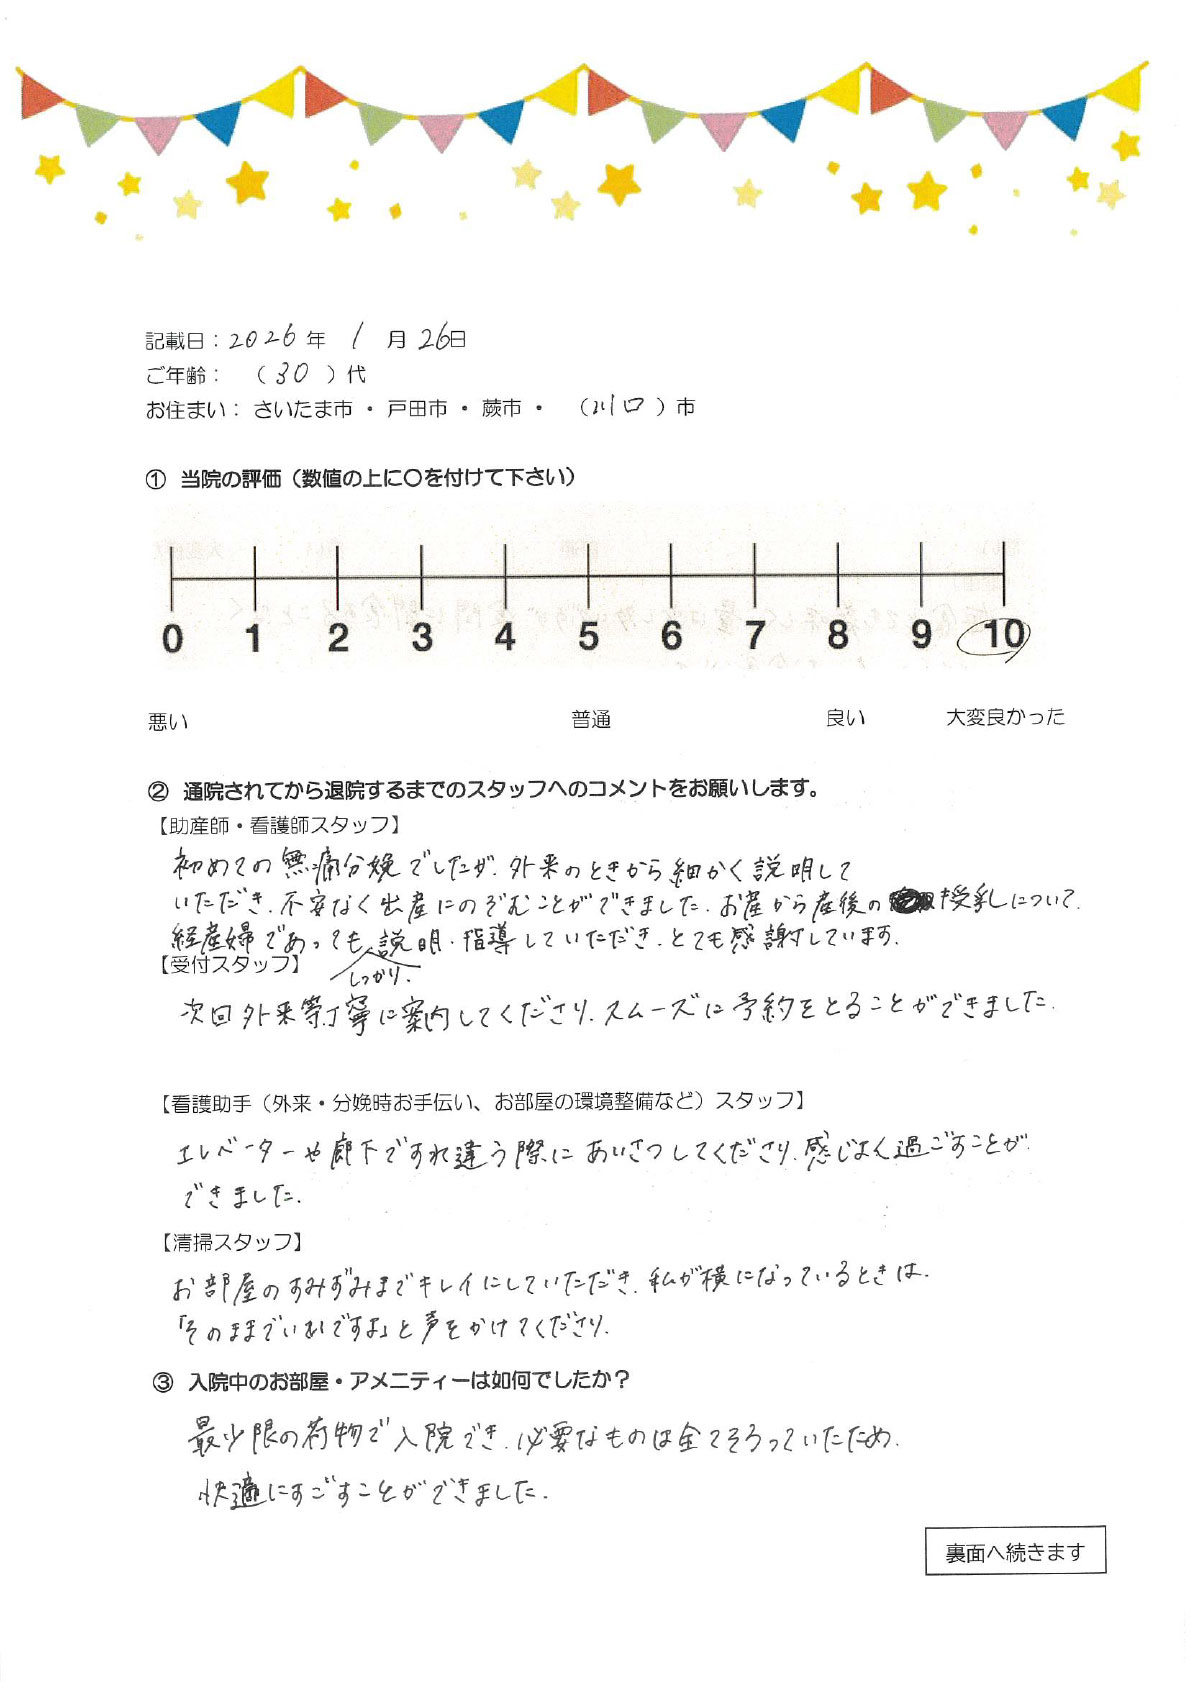 記載日：2026年 1月26日
ご年齢： （30）代
お住まい：さいたま市・戸田市・蕨市・（川口）市
① 当院の評価（数値の上に〇を付けて下さい）
0 1 2 3 4 5 6 7 8 9 10
悪い 普通 良い 大変良かった
② 通院されてから退院するまでのスタッフへのコメントをお願いします。
【助産師・看護師スタッフ】
初めての無痛分娩でしたが、外来のときから細かく説明して
いただき、不安なく出産にのぞむことができました。お産から産後の授乳について、
経産婦であってもしっかり説明・指導していただき、とても感謝しています。
【受付スタッフ】
次回外来等丁寧に案内してくださり、スムーズに予約をとることができました。
【看護助手（外来・分娩時お手伝い、お部屋の環境整備など）スタッフ】
エレベーターや廊下ですれ違う際にあいさつしてくださり、感じよく過ごすことが
できました。
【清掃スタッフ】
お部屋のすみずみまでキレイにしていただき、私が横になっているときは、
「そのままでいいですよ」と声をかけてくださり、
③ 入院中のお部屋・アメニティーは如何でしたか？
最少限の荷物で入院でき、必要なものは全てそろっていたため、
快適にすごすことができました。
裏面へ続きます